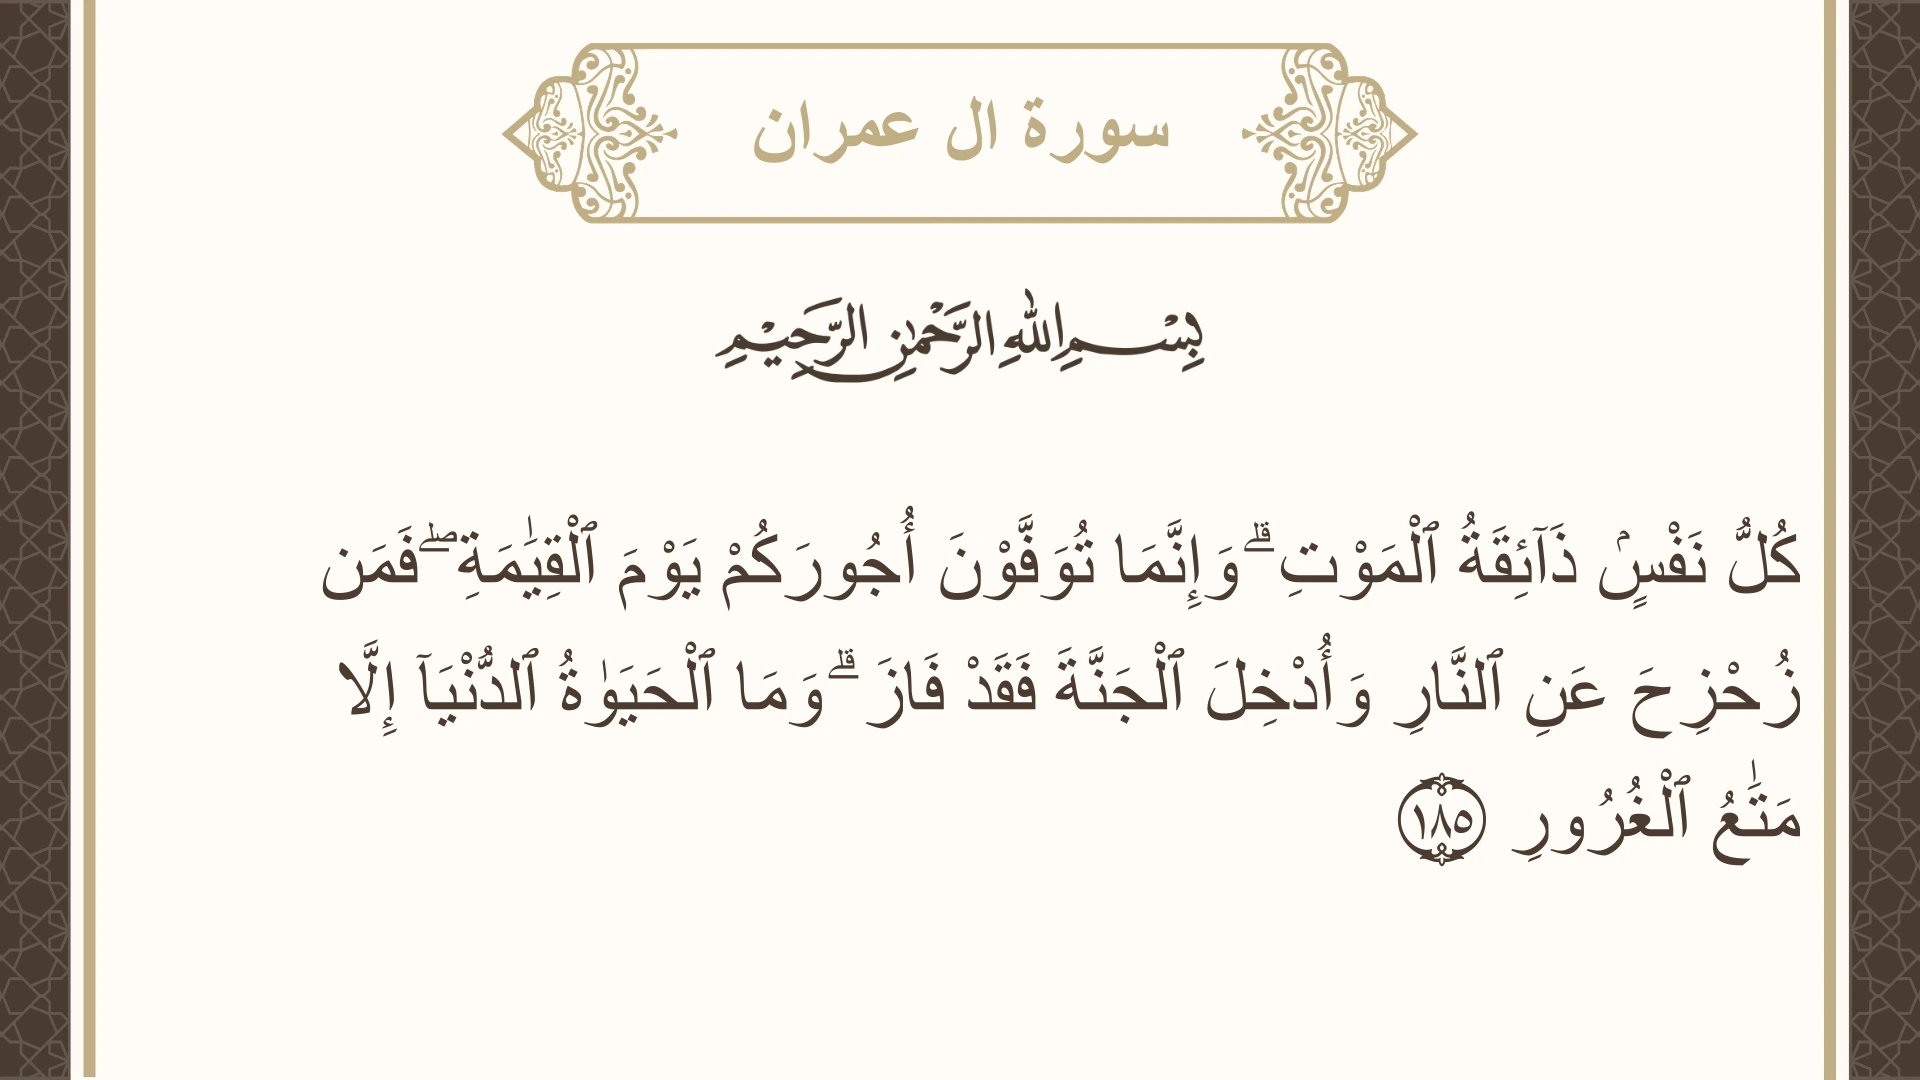 سورة ال عمران
بِسْمِ اللهِ الرَّحْمٰنِ الرَّحِيْمِ
كُلُّ نَفْسٍۢ ذَآئِقَةُ ٱلْمَوْتِ ۗ وَإِنَّمَا تُوَفَّوْنَ أُجُورَكُمْ يَوْمَ ٱلْقِيَـٰمَةِ ۖ فَمَن
زُحْزِحَ عَنِ ٱلنَّارِ وَأُدْخِلَ ٱلْجَنَّةَ فَقَدْ فَازَ ۗ وَمَا ٱلْحَيَوٰةُ ٱلدُّنْيَآ إِلَّا
مَتَـٰعُ ٱلْغُرُورِ ١٨٥